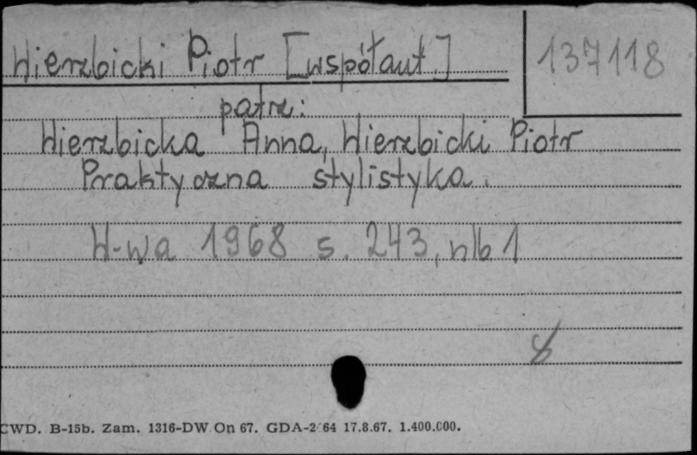 Wierzbicki Piotr [współaut.]
137118
patrz:
Wierzbicka Anna, Wierzbicki Piotr
Praktyczna stylistyka.
W-wa 1968 s. 243, nlb 1
CWD. B-15b. Zam. 1316-DW On 67. GDA-2/64 17.8.67. 1.400.000.